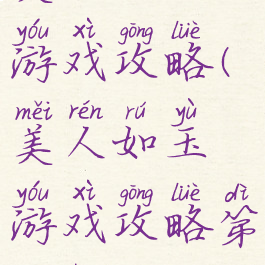 yóu xì gōng lüè
游戏攻略(
měi rén rú yù
美人如玉
yóu xì gōng lüè dì
游戏攻略第